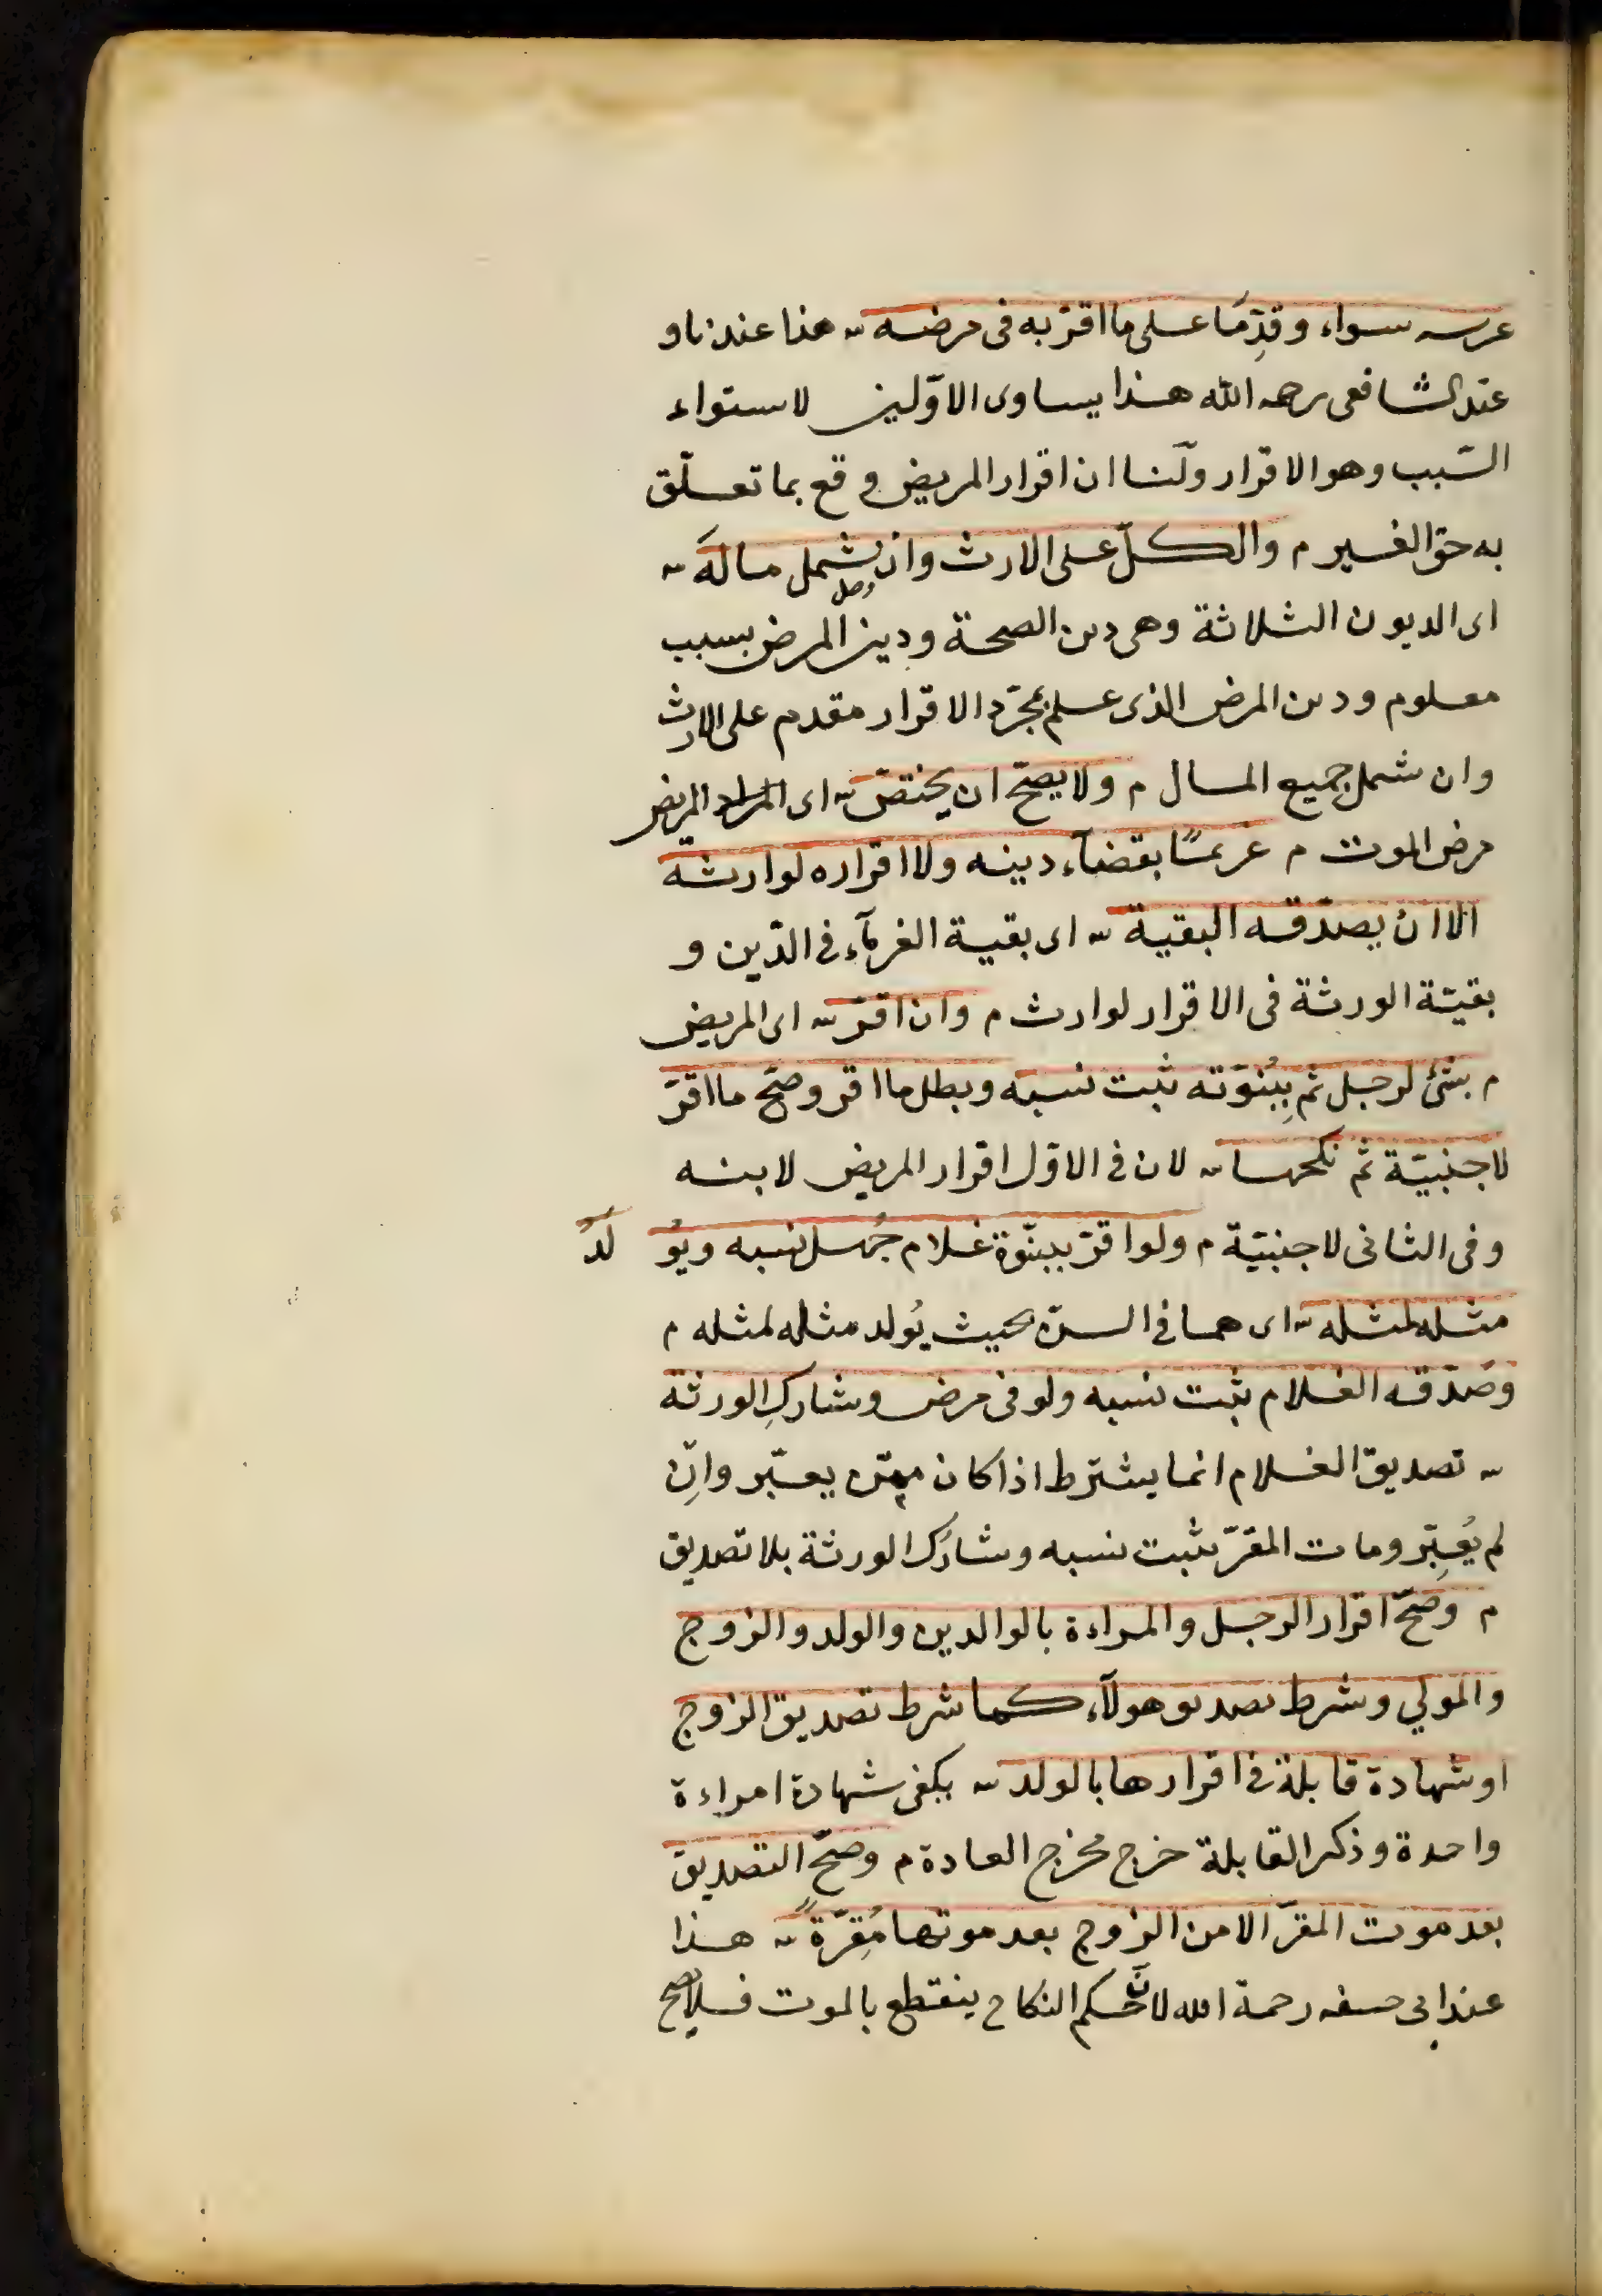 عرسه سواء وقدِّما على ما اقرّ به فى مرضه ~ هذا عندنا و
عند الشافعى رحمه الله هذا يساوى الاوّلين لاستواء
السّبب وهو الاقرار ولنا ان اقرار المريض وقع بما تعلّق
به حق الغير م والكلّ على الارث وان شمل ماله ~
اى الديون الثلاثة وهى دين الصحة ودين المرض بسبب
معلوم ودين المرض الذى علم بمجرّد الاقرار مقدم على الارث
وان شمل جميع المال م ولا يصحّ ان يختصّ ~ اى المريض
مرض الموت م غريمًا بقضآء دينه ولا اقراره لوارثه
الا ان يصدّقه البقية ~ اى بقية الغرمآء فى الدّين و
بقيّة الورثة فى الاقرار لوارث م وان اقرّ ~ اى المريض
م بشئ لرجل ثم بِبُنوّته ثبت نسبه وبطل ما اقر وصحّ ما اقرّ
لاجنبيّة ثم نكحها ~ لان فى الاوّل اقرار المريض لابنه
وفى الثانى لاجنبيّة م ولو اقرّ ببنوّة غلام جُهل نسبه ويُو لَدُ
مثله لمثله ~ اى هما فى السنّ بحيث يُولد مثله لمثله م
وصَدّقه الغلام ثبت نسبه ولو فى مرض وشارك الورثة
~ تصديق الغلام انما يشترط اذا كان ممّن يعبّر واِن
لم يُعبِّر ومات المقرّ ثبت نسبه وشارك الورثة بلا تصديق
م وصحّ اقرار الرجل والمراءة بالوالدين والولد والزوج
والمولي وشرط تصديق هولآء كما شرط تصديق الزوج
او شهادة قابلة فى اقرارها بالولد ~ يكفى شهادة امراءة
واحدة وذكر القابلة خرج مخرج العادة م وصحّ التصديق
بعد موت المقرّ الا من الزوج بعد موتها مُقِرّةً ~ هذا
عند ابى حنيفه رحمة الله لانّ حكم النكاح ينقطع بالموت فلا يصح